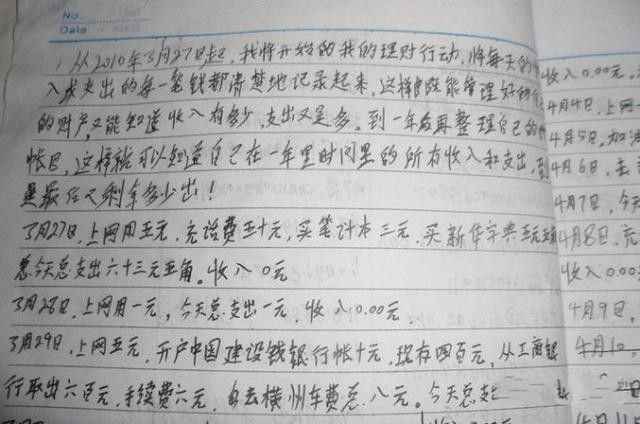 No.
Date
从2010年3月27日起，我将开始的我的理财行动，将每天的
入或支出的每一笔钱都清楚地记录起来，这样既能管理好
的财产，又能知道收入有多少，支出又是多。到一年后再整理自己的
帐目，这样就可以知道自己在一年里时间里的所有收入和支出，到
是最后又剩多少出！
3月27日，上网用五元，充话费五十元，买笔计本三元，买新华字典五元五角
总今天总支出六十三元五角。收入0元
3月28日，上网用一元，今天总支出一元，收入0.00元
3月29日，上网五元，开户中国建设银行帐十元，现存四百元，从工商银
行取出六百元，手续费六元，去横州车费总八元。今天总支
收入0.00元，
4月4日，上网
4月5日，加
4月6日，
4月7日，今天
4月8日，充
收入0.00
4月9日，
4月1